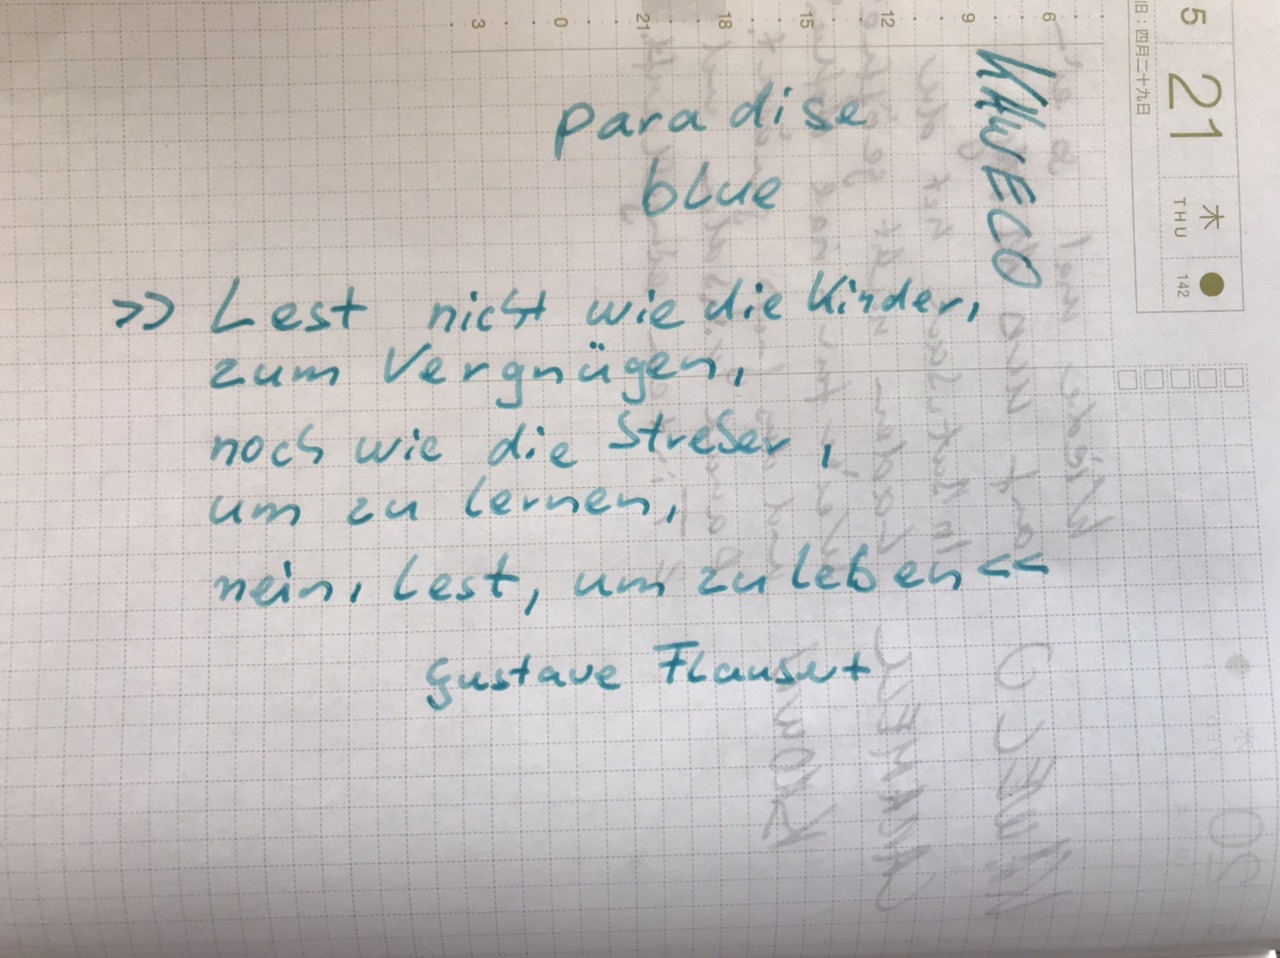 KAWECO
paradise
blue
>> Lest nicht wie die Kinder,
zum Vergnügen,
noch wie die Streber,
um zu lernen,
nein, lest, um zu leben <<
Gustave Flaubert
3 0 21 18 15 12 9 6
5
21
木
THU
142
旧:四月二十九日
20